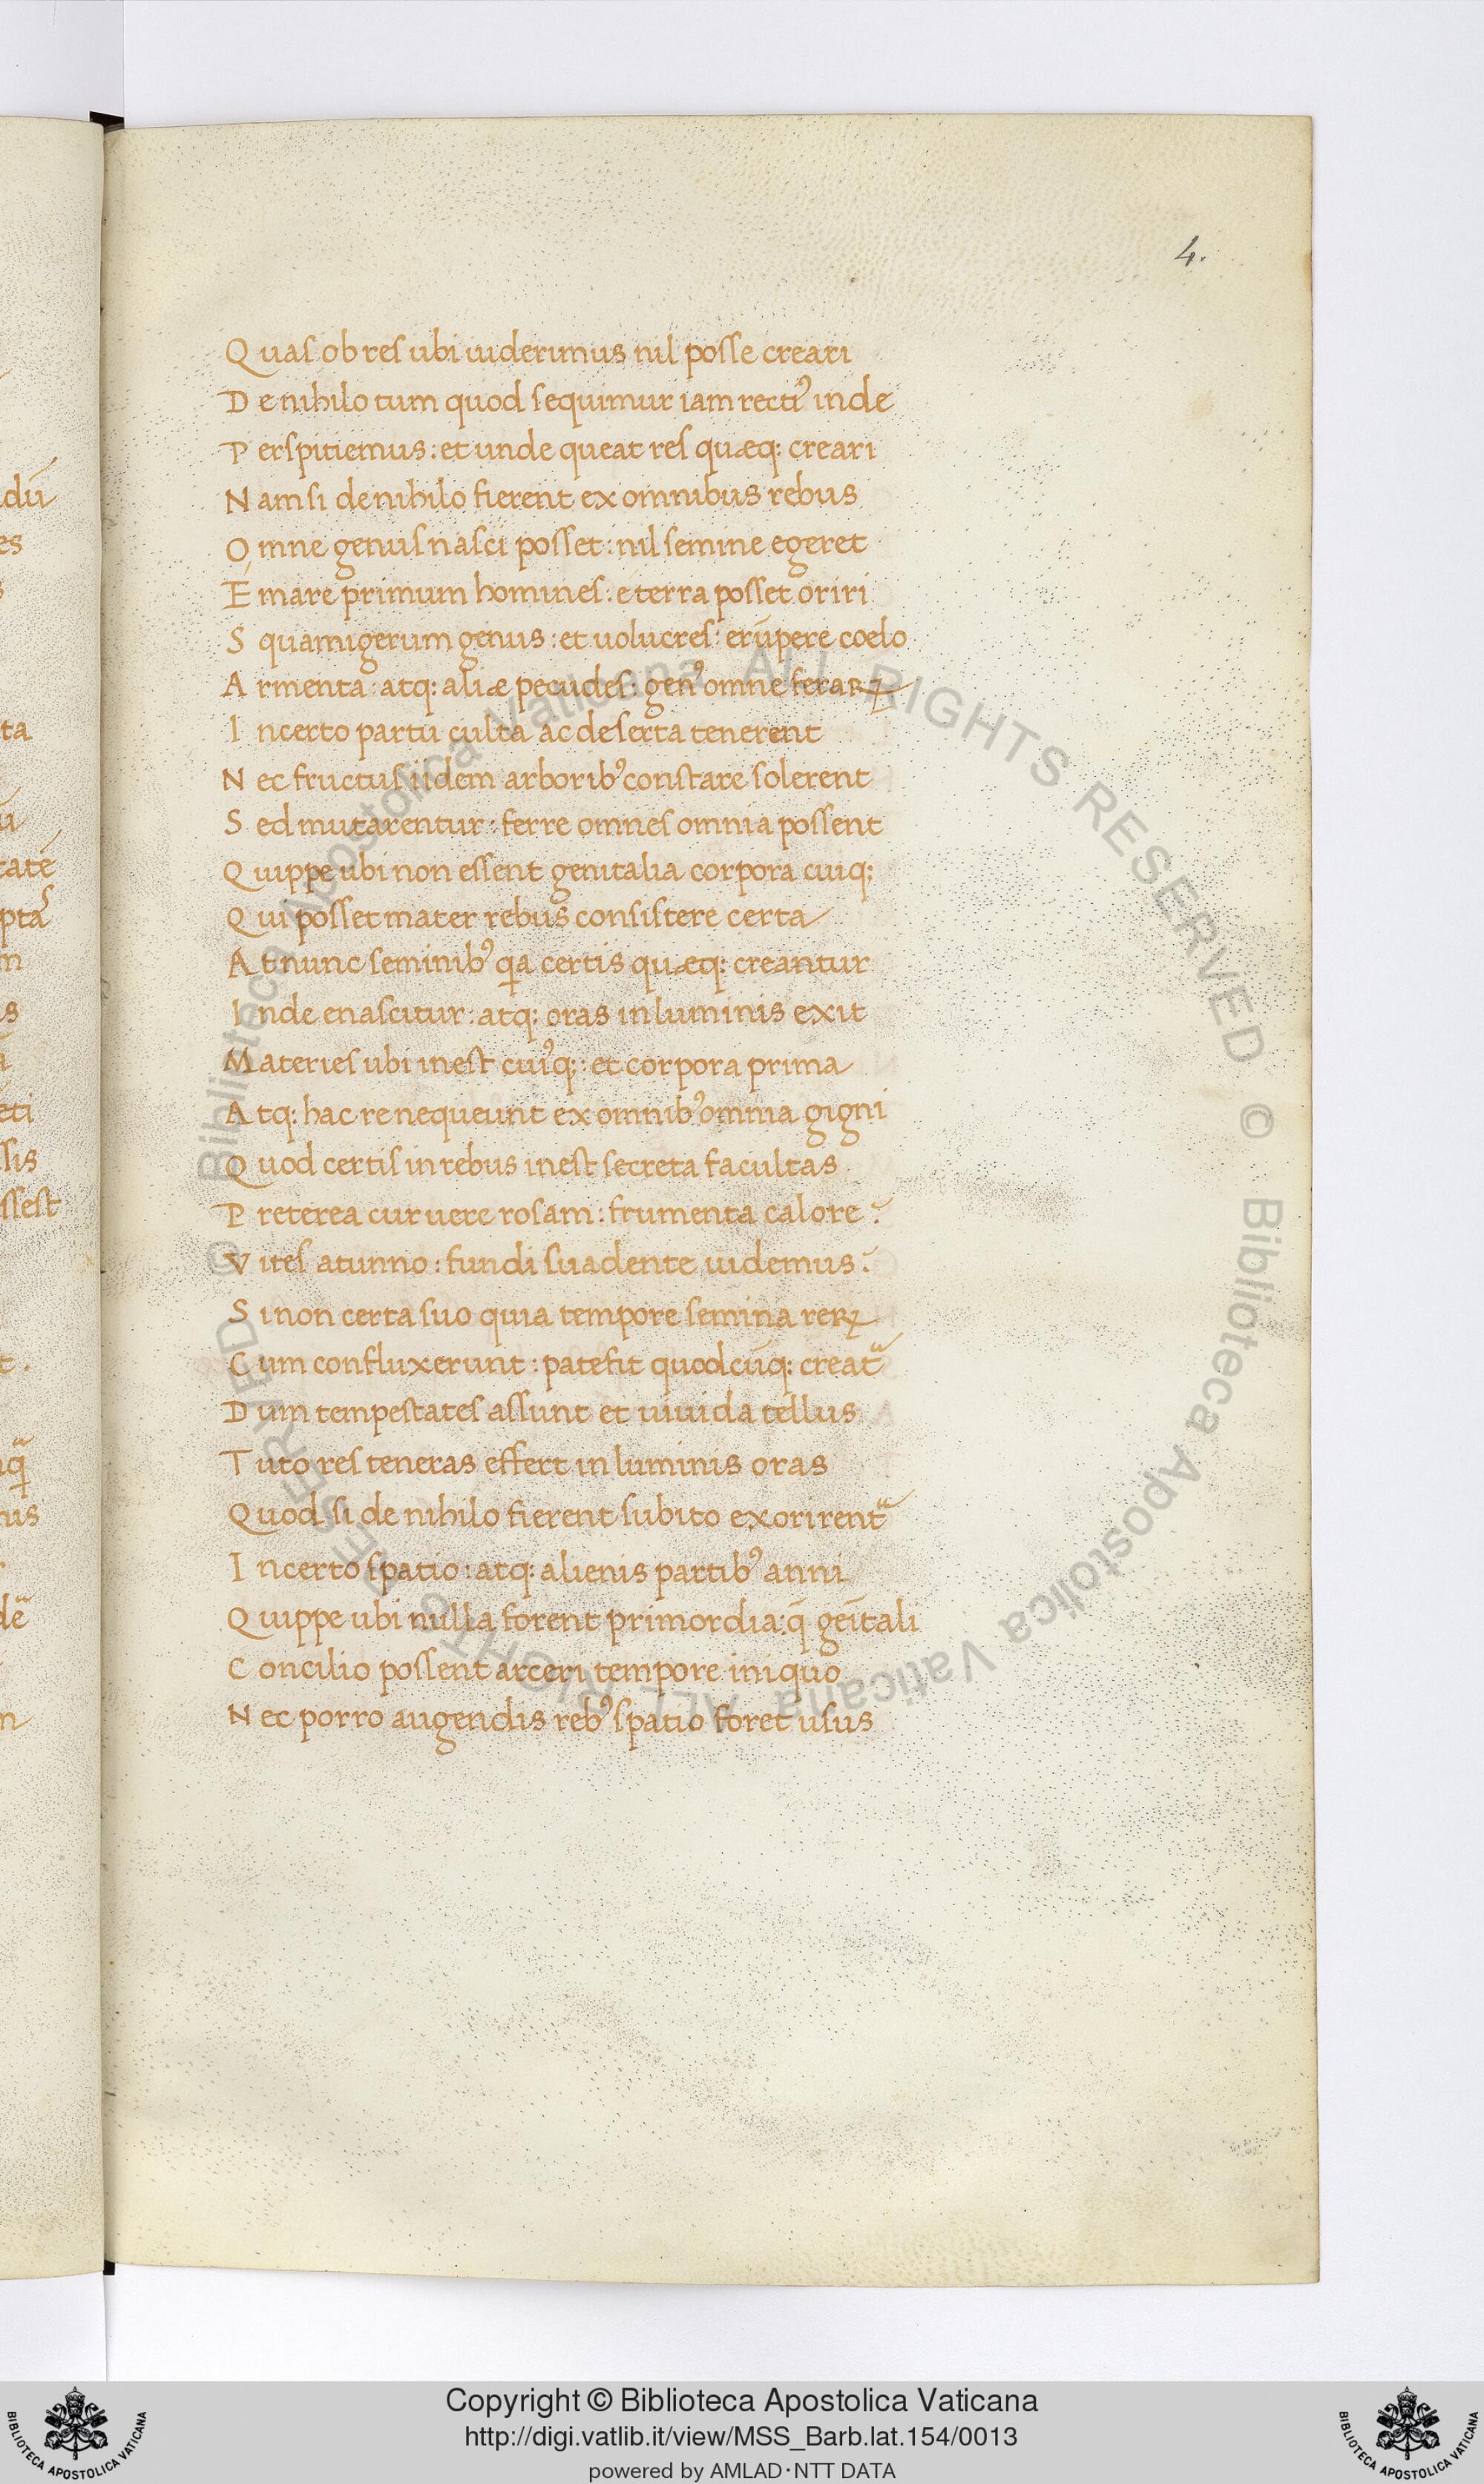 4.
Quas ob res ubi uiderimus nil posse creari
De nihilo tum quod sequimur iam rectiꝰ inde
Perspitiemus: et unde queat res quæq: creari
Nam si de nihilo fierent ex omnibus rebus
Omne genus nasci posset: nil semine egeret
É mare primum homines: é terra posset oriri
Squamigerum genus: et uolucres: erūpere coelo
Armenta: atq: aliæ pecudes: genꝰ omne feraꝝ
Incerto partu culta ac deserta tenerent
Nec fructus iidem arboribꝰ constare solerent
Sed mutarentur: ferre omnes omnia possent
Quippe ubi non essent genitalia corpora cuiq;
Qui posset mater rebus consistere certa
At nunc seminibꝰ qa certis quæq: creantur
Inde enascitur: atq: oras in luminis exit
Materies ubi inest cuiꝰq;: et corpora prima
Atq: hac re nequeunt ex omnibꝰ omnia gigni
Quod certis in rebus inest secreta facultas
Preterea cur uere rosam: frumenta calore?
Vites atunno: fundi suadente uidemus?
Si non certa suo quia tempore semina reꝝ
Cum confluxerunt: patefit quodcūq: creat᷑
Dum tempestates assunt et uiuida tellus
Tuto res teneras effert in luminis oras
Quod si de nihilo fierent subito exorirent᷑
Incerto spatio: atq: alienis partibꝰ anni
Quippe ubi nulla forent primordia: q̄ geītali
Concilio possent arceri tempore iniquo
Nec porro augendis rebꝰ spatio foret usus
© Biblioteca Apostolica Vaticana ALL RIGHTS RESERVED © Biblioteca Apostolica Vaticana ALL RIGHTS RESERVED
Copyright © Biblioteca Apostolica Vaticana
http://digi.vatlib.it/view/MSS_Barb.lat.154/0013
powered by AMLAD·NTT DATA
BIBLIOTECA APOSTOLICA VATICANA
BIBLIOTECA APOSTOLICA VATICANA